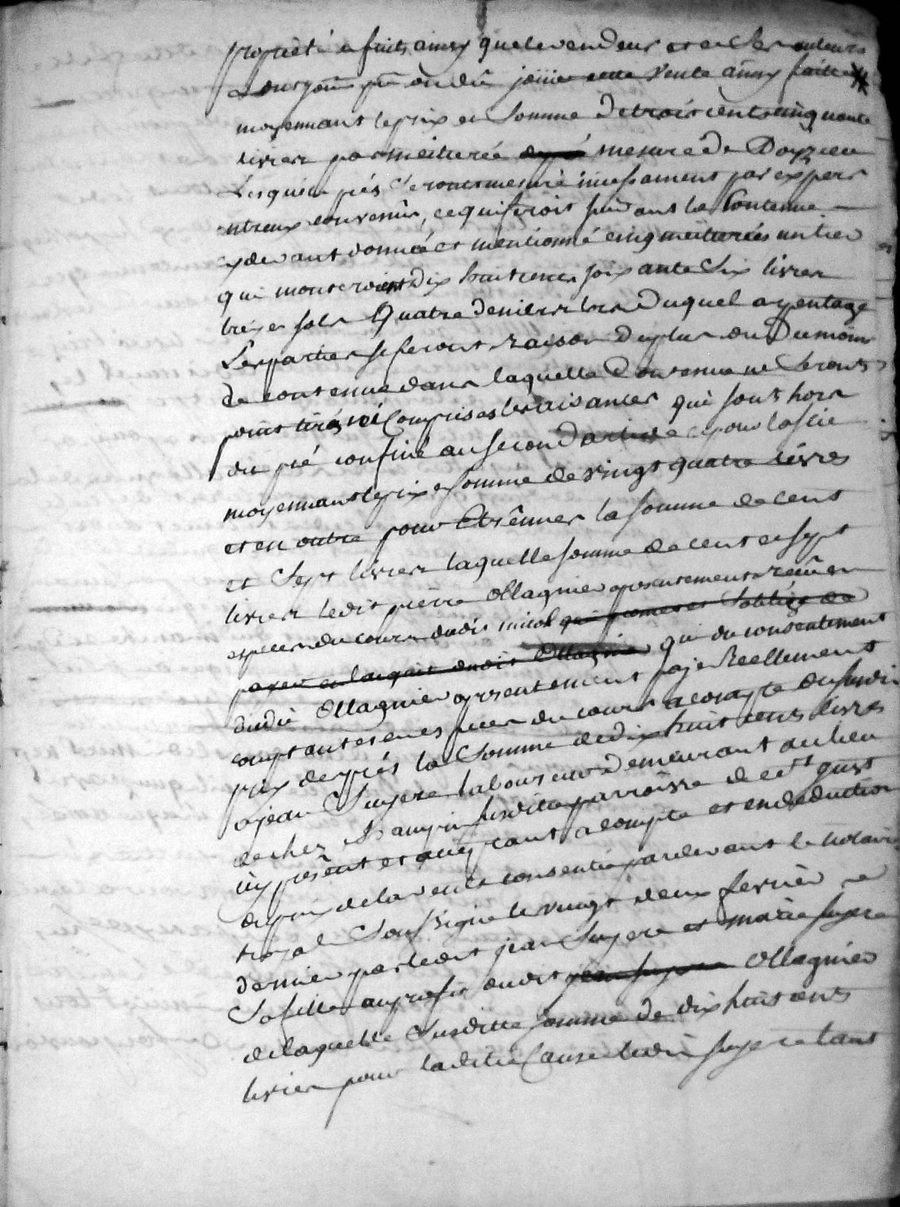 proprieté et fruits ainsy que le vendeur et ses auteurs
en ont jouÿ ou dû jouïr cette vente ainsy faitte
moyennant le prix et somme de trois cents cinquante
livres par meiterée mesure de Doyzieu
Lesquels prés seront mesuré incessament par expers
entreux convenus, ce qui feroit suivant la Contenue
cy devant donnée et mentionné cinq meiterées un tier
qui monteroient dix huit cents soixante six livres
treize sols Quatre deniers lors duquel arpentage
Les parties se feront raison du plus ou Du moins
de contenue dans laquelle Contenue ne seront
point comprises les aisances qui sont hors
du pré confiné au second article et pour
moyennant le prix et somme de vingt quatre livres
et en outre pour Etrênnes la somme de cent
et sept livres laquelle somme de cent et sept
livres ledit pierre Ollagnier a presentement reçüe en
especes du cours dudit nicol qui promet et s'oblige de
payer en l'acquit dudit Ollagnier qui du consentement
dudit Ollagnier a presentement payé Reellement
comptant et en especes du cours a compte du susdit
prix des prés la Somme de dix huit cents livres
a jean Suyere laboureur Demeurant au lieu
de chez susditte parroisse de st just
icy présent et acceptant a compte et en deduction
du prix de la vente consentie pardevant le notaire
royal Soussigné le vingt deux fevrier
dernier par ledit jean Suyere et marie Suyere
Sa fille au profit dudit jean Suyere Ollagnier
de laquelle Susditte somme de dix huit cents
livres pour laditte Cause ledit Suyere tant